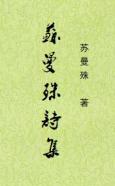 蘇曼殊詩集
苏曼殊 著